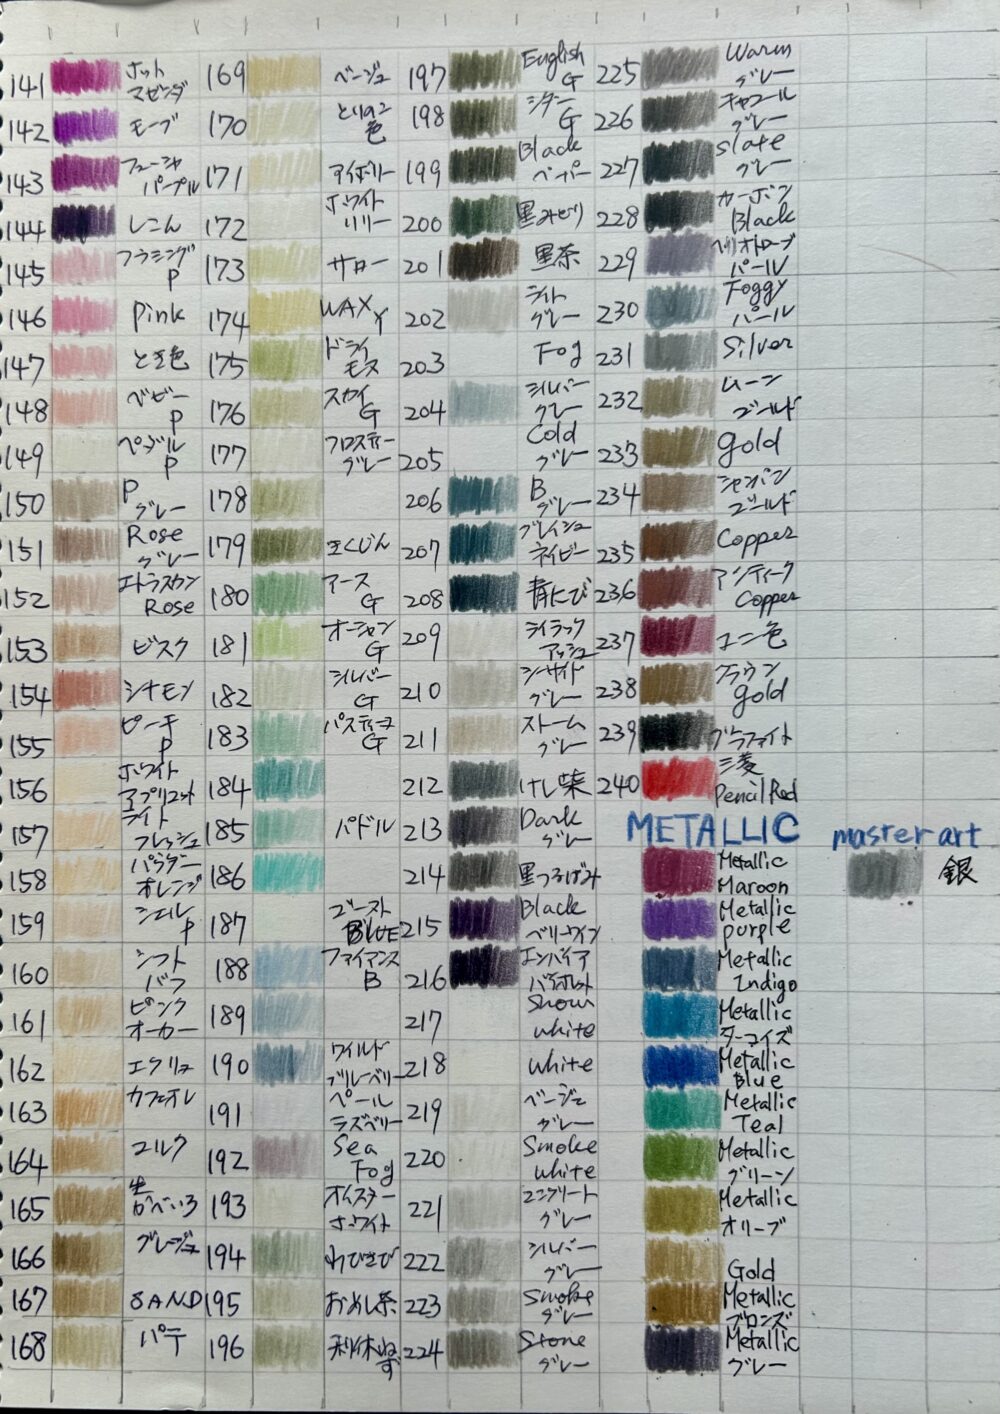 141 ホット
マゼンダ
142 モーブ
143 フューシャ
パープル
144 しこん
145 フラミンゴ
P
146 Pink
147 とき色
148 ベビー
P
149 ペダル
P
150 P
グレー
151 Rose
グレー
152 エトラスカン
Rose
153 ビスク
154 シナモン
155 ピーチ
P
156 ホワイト
アプリコット
157 ライト
フレッシュ
158 パウダー
オレンジ
159 シェル
P
160 シフト
バフ
161 ピンク
オーカー
162 エクリュ
163 カフェオレ
164 コルク
165 生
かべいろ
166 グレージュ
167 SAND
168 パテ
169 ベージュ
170 とりのこ
色
171 アイボリー
172 ホワイト
リリー
173 サロー
174 WAX
Y
175 ドライ
モス
176 スカイ
G
177 フロスティー
グレー
178
179 きくじん
180 アース
G
181 オーシャン
G
182 シルバー
G
183 パスティーユ
G
184
185 パドル
186
187 ゴースト
BLUE
188 ファイアンス
B
189
190 ワイルド
ブルーベリー
191 ペール
ラズベリー
192 Sea
Fog
193 オイスター
ホワイト
194 わびさび
195 おめし茶
196 利休ねず
197 English
G
198 シダー
G
199 Black
ペーパー
200 黒みどり
201 黒茶
202 ライト
グレー
203 Fog
204 シルバー
グレー
205 Cold
グレー
206 B
グレー
207 グレイシュ
ネイビー
208 青にび
209 ライラック
アッシュ
210 シーサイド
グレー
211 ストーム
グレー
212 けし紫
213 Dark
グレー
214 黒つるばみ
215 Black
ベリーワイン
216 エンパイア
バイオレット
217 Snow
white
218 White
219 ベージュ
グレー
220 Smoke
white
221 コンクリート
グレー
222 シルバー
グレー
223 Smoke
グレー
224 Stone
グレー
225 Warm
グレー
226 チャコール
グレー
227 Slate
グレー
228 カーボン
Black
229 ヘリオトロープ
パール
230 Foggy
パール
231 Silver
232 ムーン
ゴールド
233 gold
234 シャンパン
ゴールド
235 Copper
236 アンティーク
Copper
237 ユニ色
238 クラウン
gold
239 グラファイト
240 三菱
Pencil Red
METALLIC
Metallic
Maroon
Metallic
purple
Metallic
Indigo
Metallic
ターコイズ
Metallic
Blue
Metallic
Teal
Metallic
グリーン
Metallic
オリーブ
Gold
Metallic
ブロンズ
Metallic
グレー
master art
銀